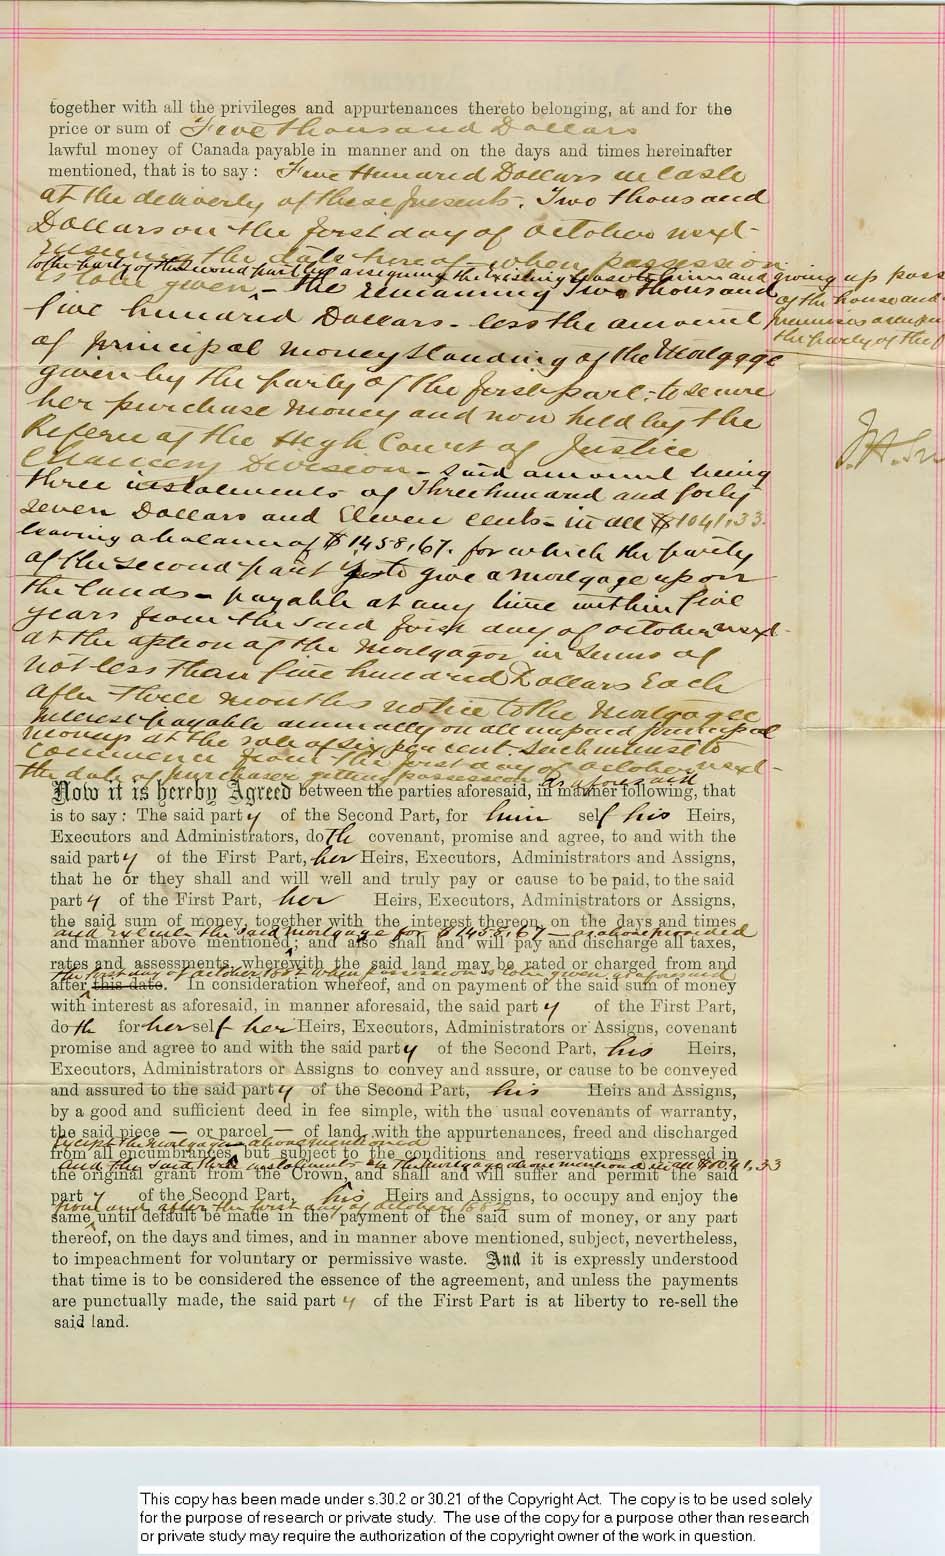 together with all the privileges and appurtenances thereto belonging, at and for the
price or sum of Five thousand Dollars
lawful money of Canada payable in manner and on the days and times hereinafter
mentioned, that is to say: Five Hundred Dollars in Cash
at the delivery of these presents. Two thousand
Dollars on the first day of October next
ensuing the date hereof when possession
to the party of the second part by assigning the existing lease to him and giving up poss
is to be given – the remaining Two thousand
of the house and
five hundred Dollars – less the amount
premises
the party of the f
of principal money standing of the Mortgage
given by the party of the first part, to secure
her purchase money and now held by the
Referee of the High Court of Justice
J.H.
Chancery Division – said amount being
three instalments of Three hundred and forty
seven Dollars and Eleven cents – in all $1041,33.
leaving a balance of $1458,67. for which the party
of the second part is to give a mortgage upon
the lands – payable at any time within five
years from the said first day of October next
at the option of the Mortgagor in sums of
not less than five hundred Dollars Each
after three months notice to the Mortgagee
Interest payable annually on all unpaid principal
moneys at the rate of six per cent. Such interest to
commence from the first day of October next
the date of purchaser getting possession as aforesaid
Now it is hereby Agreed between the parties aforesaid, in manner following, that
is to say: The said party of the Second Part, for him self his Heirs,
Executors and Administrators, doth covenant, promise and agree, to and with the
said party of the First Part, her Heirs, Executors, Administrators and Assigns,
that he or they shall and will well and truly pay or cause to be paid, to the said
party of the First Part, her Heirs, Executors, Administrators or Assigns,
the said sum of money, together with the interest thereon, on the days and times
and execute the said mortgage for $1458,67 – as above provided
and manner above mentioned; and also shall and will pay and discharge all taxes,
rates and assessments, wherewith the said land may be rated or charged from and
the first day of October 1882 when possession is to be given as aforesaid
after this date. In consideration whereof, and on payment of the said sum of money
with interest as aforesaid, in manner aforesaid, the said party of the First Part,
doth for herself her Heirs, Executors, Administrators or Assigns, covenant
promise and agree to and with the said party of the Second Part, his Heirs,
Executors, Administrators or Assigns to convey and assure, or cause to be conveyed
and assured to the said party of the Second Part, his Heirs and Assigns,
by a good and sufficient deed in fee simple, with the usual covenants of warranty,
the said piece — or parcel — of land, with the appurtenances, freed and discharged
Except the mortgage above mentioned
from all encumbrances, but subject to the conditions and reservations expressed in
and the said three instalments on the mortgage above mentioned in all $1041,33
the original grant from the Crown, and shall and will suffer and permit the said
party of the Second Part, his Heirs and Assigns, to occupy and enjoy the
from and after the first day of October 1882
same until default be made in the payment of the said sum of money, or any part
thereof, on the days and times, and in manner above mentioned, subject, nevertheless,
to impeachment for voluntary or permissive waste. And it is expressly understood
that time is to be considered the essence of the agreement, and unless the payments
are punctually made, the said party of the First Part is at liberty to re-sell the
said land.
This copy has been made under s.30.2 or 30.21 of the Copyright Act. The copy is to be used solely
for the purpose of research or private study. The use of the copy for a purpose other than research
or private study may require the authorization of the copyright owner of the work in question.